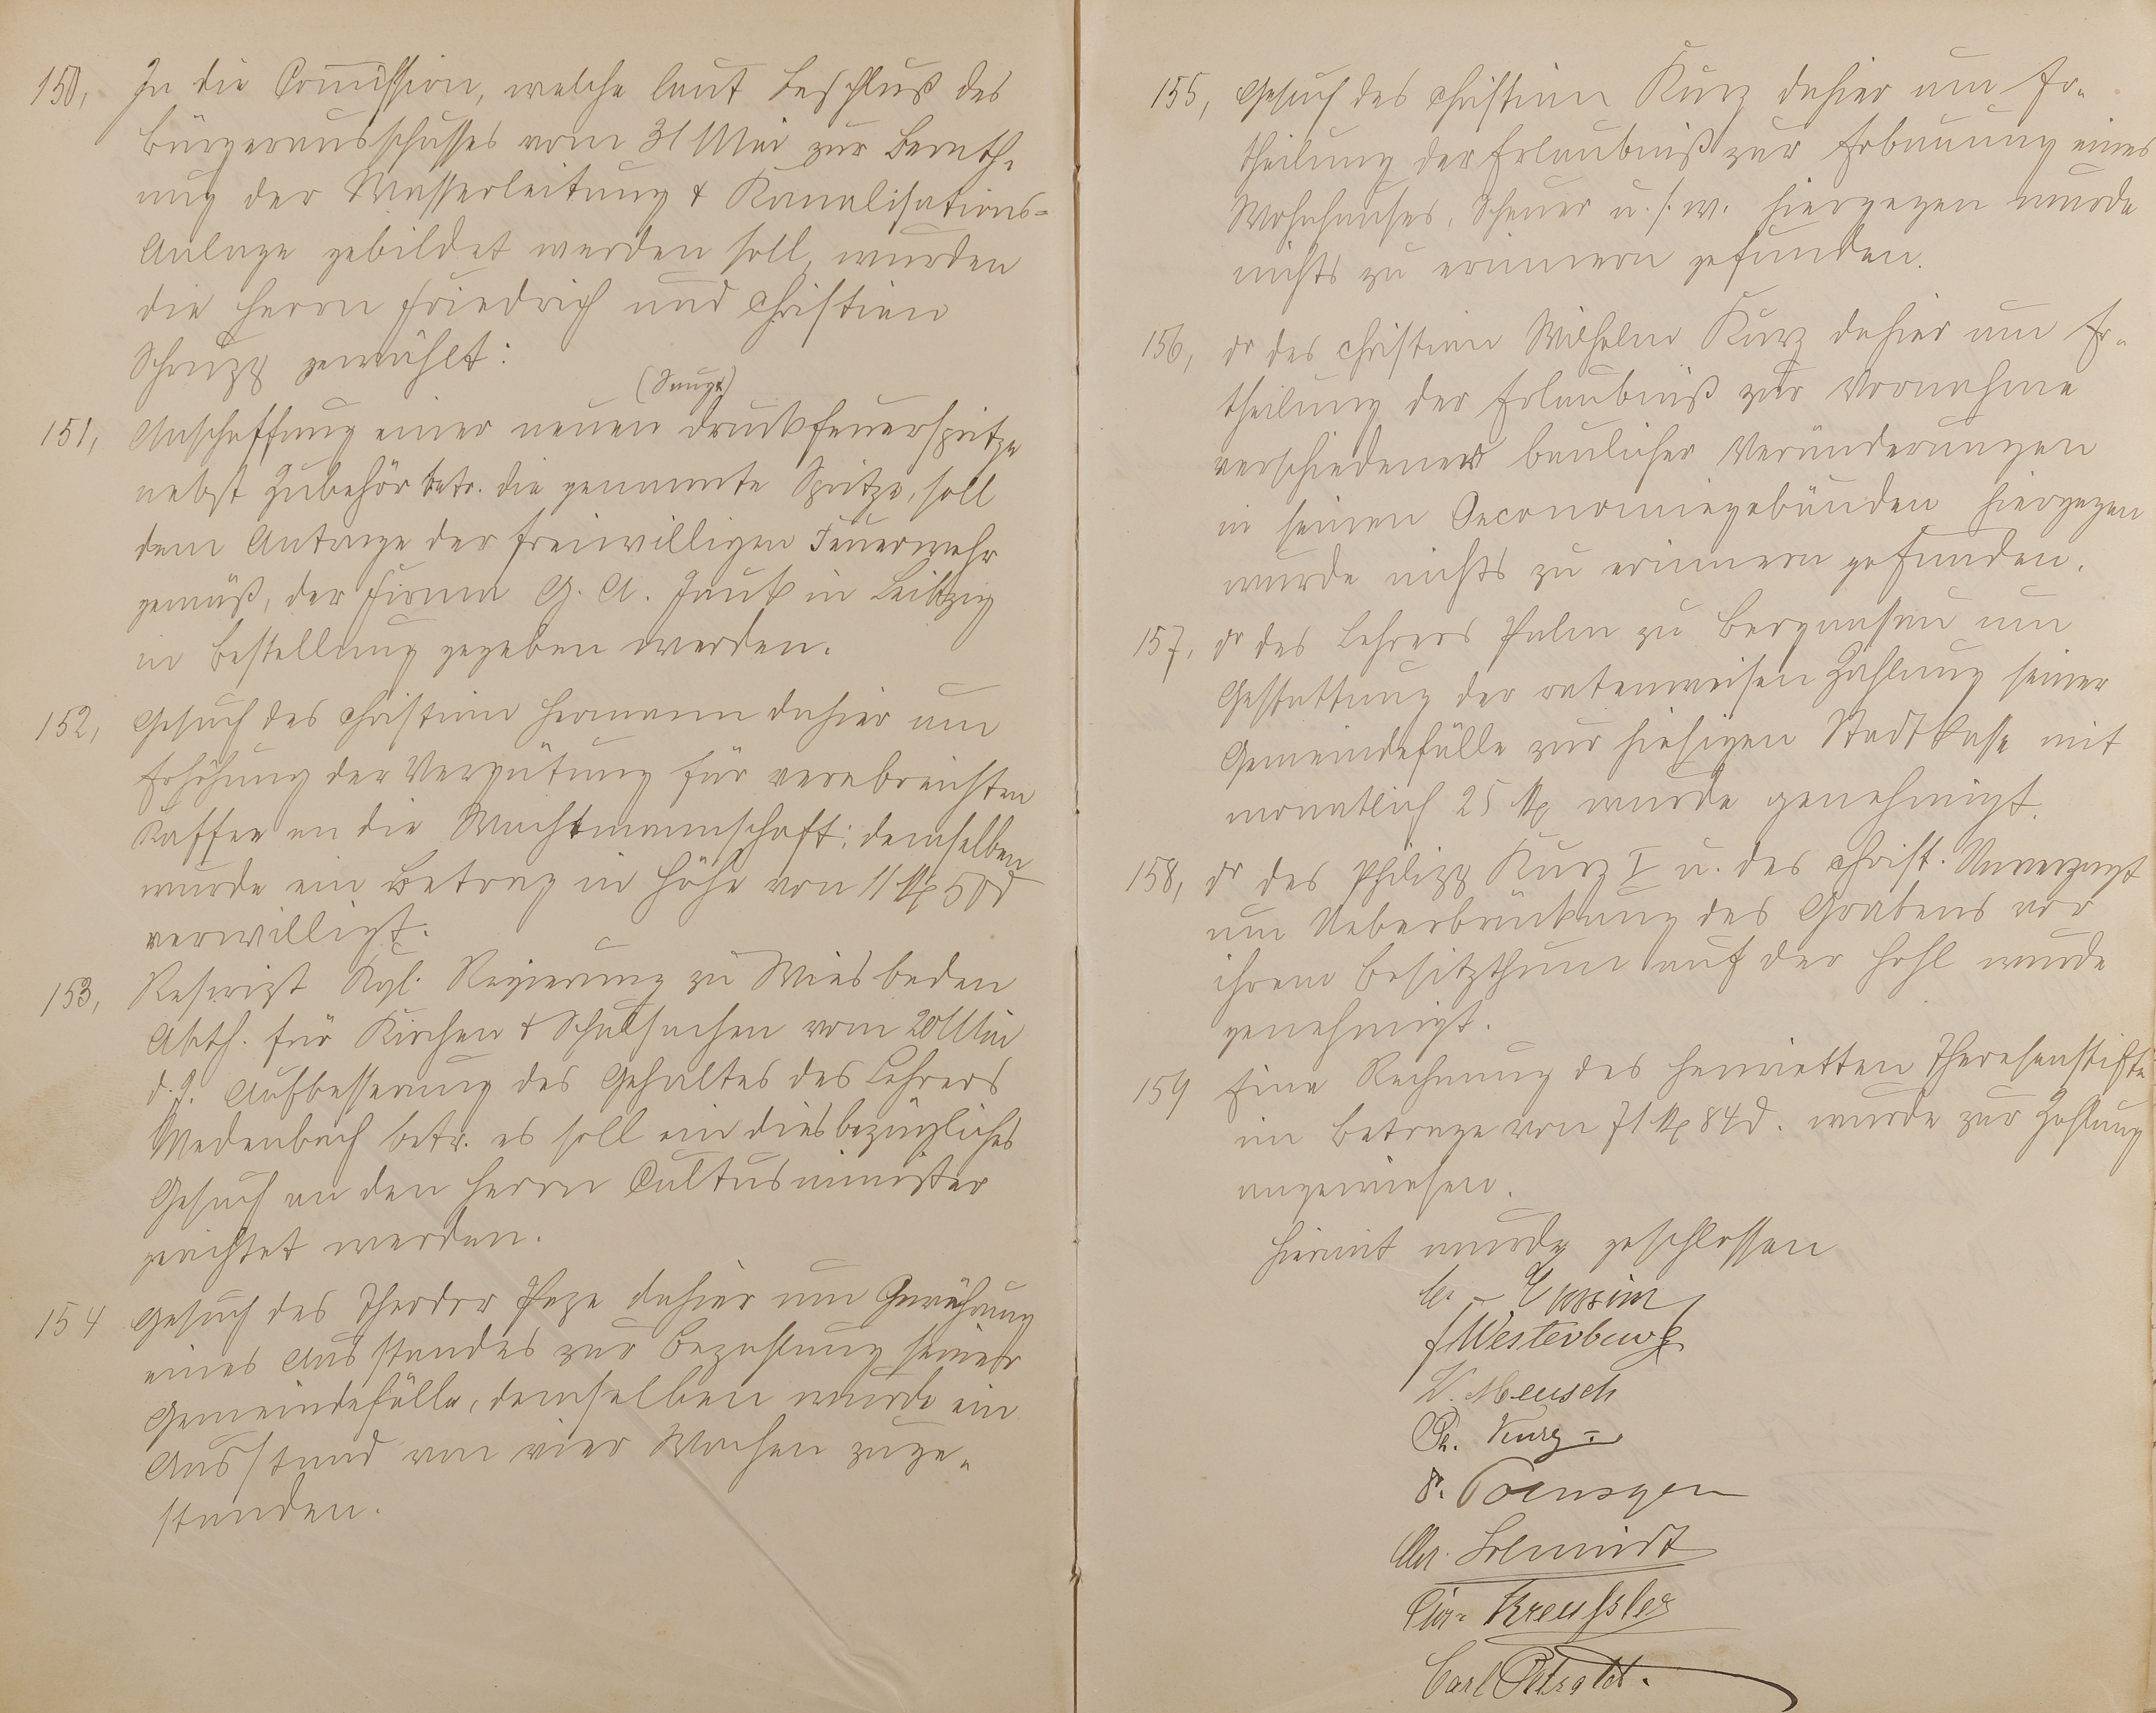 150, In die Com̅ission, welche laut Beschluß des
Bürgerausschusses vom 31 Mai zur Berath-
ung der Wasserleitung & Kanalisations-
Anlage gebildet werden soll, wurden
die Herrn Friedrich und Christian
Schrupp gewählt:
(Saug&)
151, Anschaffung einer neuen Druckfeuerspritze
nebst Zubehör betr. die genannte Spritze, soll
dem Antrage der freiwilligen Feuerwehr
gemäß, der Firma G. A. Jauk in Leibzig
in Bestellung gegeben werden.
152, Gesuch des Christian Hermann dahier um
Erhöhung der Vergütung für verabreichten
Kaffee an die Wachtmannschaft: demselben
wurde ein Betrag in Höhe von 11 M 50 d
verwilligt.
153, Rescript Kgl. Regierung zu Wiesbaden
Abth. für Kirchen & Schulsachen vom 20 Mai
d. J. Aufbesserung des Gehaltes des Lehrers
Medenbach betr. es soll ein diesbezügliches
Gesuch an den Herrn Cultusminister
gerichtet werden.
154 Gesuch des Theodor Pege dahier um Gewährung
eines Ausstandes zur Bezahlung seiner
Gemeindefälle, demselben wurde ein
Ausstand von vier Wochen zuge-
standen.
155, Gesuch des Christian Kurz dahier um Er-
theilung der Erlaubniß zur Erbauung eines
Wohnhauses, Scheuer u. s. w. hiergegen wurde
nichts zu erinnern gefunden.
156, do des Christian Wilhelm Kurz dahier um Er-
theilung der Erlaubniß zur Vornahme
verschiedener baulicher Veränderungen
in seinen Oeconomiegebäuden hiergegen
wurde nichts zu erinnern gefunden.
157, do des Lehrers Palm zu Bergnassau um
Gestattung der ratenweisen Zahlung seiner
Gemeindefälle zur hiesigen Stadtkasse mit
monatlich 25 M wurde genehmigt.
158, do des Philipp Kurz I u. des Christ. Unverzagt
um Ueberbrückung des Grabens vor
ihrem Besitzthum auf der Hohl wurde
genehmigt.
159 Eine Rechnung des Henrietten Theresenstifts
im Betrage von 71 M 84 d. wurde zur Zahlung
angewiesen.
Hiermit wurde geschlossen
F Westerburg
W. Meusch
Ph. Kurz
P. Poensgen
Chr. Schmidt
Chr. Kreussler
Carl